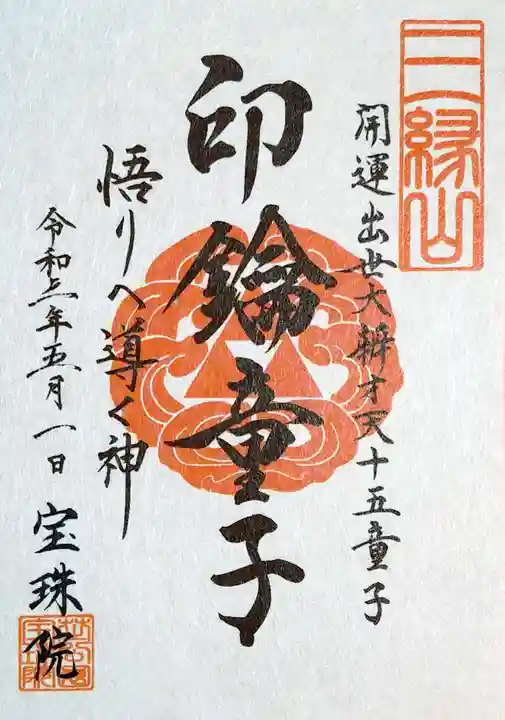 三縁山
開運出世大辨才天十五童子
印鑰童子
悟りへ導く神
令和三年五月一日
宝珠院